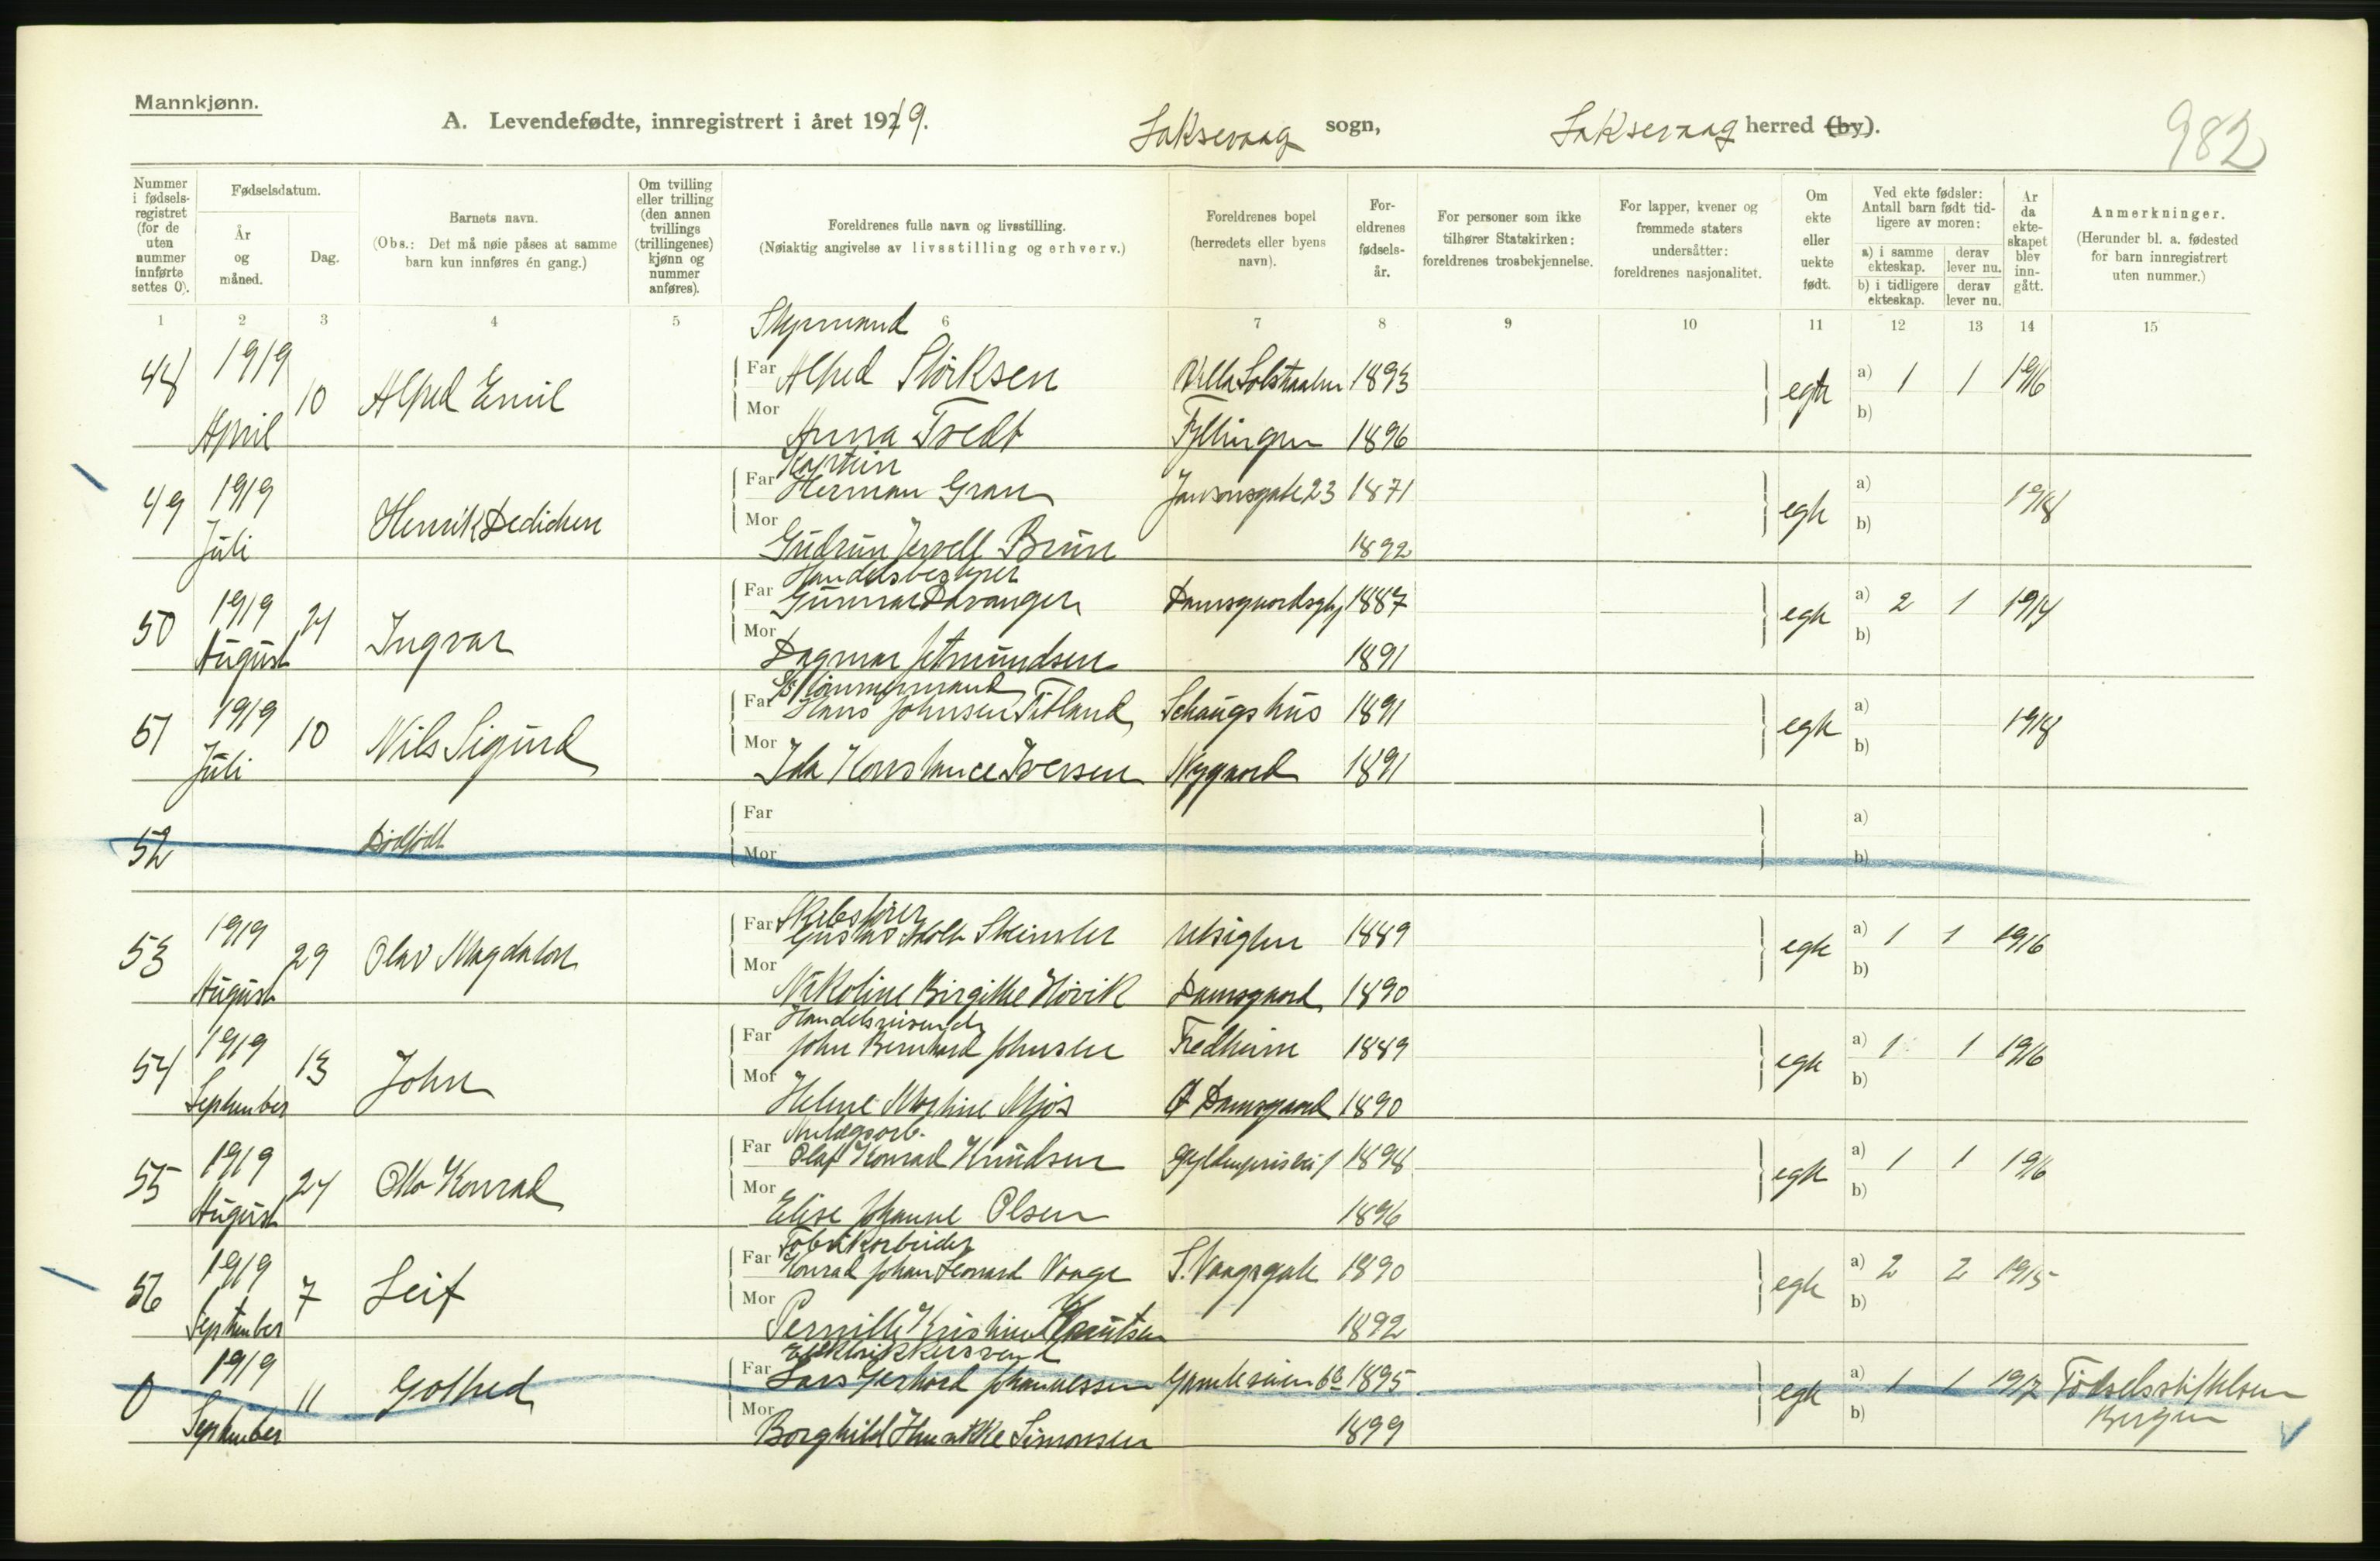 Mannkjønn.
A. Levendefødte, innregistrert i året 1919.
Laksevaag sogn,
Laksevaag herred (by).
982
Nummer i fødselsregistret (for de uten nummer innførte settes 0).
Fødselsdatum.
År og måned.
Dag.
Barnets navn.
(Obs.: Det må nøie påses at samme barn kun innføres én gang.)
Om tvilling eller trilling (den annen tvillings (trillingenes) kjønn og nummer anføres).
Foreldrenes fulle navn og livsstilling.
(Nøiaktig angivelse av livsstilling og erhverv.)
Foreldrenes bopel (herredets eller byens navn).
Foreldrenes fødselsår.
For personer som ikke tilhører Statskirken: foreldrenes trosbekjennelse.
For lapper, kvener og fremmede staters undersåtter: foreldrenes nasjonalitet.
Om ekte eller uekte født.
Ved ekte fødsler: Antall barn født tidligere av moren:
a) i samme ekteskap.
derav lever nu.
b) i tidligere ekteskap.
derav lever nu.
År da ekteskapet blev inngått.
Anmerkninger.
(Herunder bl. a. fødested for barn innregistrert uten nummer.)
1 2 3 4 5 6 7 8 9 10 11 12 13 14 15
Styrmand
48 1919 10 Alfred Emil Far Alfred Störksen Villa Solstraalen 1893 egte a) 1 1 1916
April Mor Anna Tvedt Fyllingen 1896 b)
Kaptein
49 1919 Henrik Dedichen Far Herman Gran Jansonsgate 23 1871 egte a) 1918
Juli Mor Gudrun Jervell Brun 1892 b)
Handelsbestyrer
50 1919 21 Ingvar Far Gunnar Davanger 1887 egte a) 2 1 1914
August Mor Dagmar Asmundsen 1891 b)
51 1919 10 Nils Sigurd Far Hans Johnsen Titland Schaugshus 1891 egte a) 1918
Juli Mor Ida Konstance Iversen Nygaard 1891 b)
52 Dödfödt Far a)
Mor b)
Skibsfører
53 1919 29 Olav Magdalon Far Gustav Adolf Steinsler Utsigten 1889 egte a) 1 1 1916
August Mor Nikoline Birgitte Hövik Damsgaard 1890 b)
Handelsreisende
54 1919 13 John Far John Bernhard Johnsen Fredheim 1889 egte a) 1 1 1916
September Mor Helene Martine Mjös Damsgaard 1890 b)
Anlægsarb.
55 1919 24 Otto Konrad Far Olaf Konrad Knudsen Gyldenprisvei 1 1898 egte a) 1 1 1916
August Mor Elise Johanne Olsen 1896 b)
Fabrikarbeider
56 1919 7 Leif Far Konrad Johan Leonard Vaage S. Vaagsgate 1890 egte a) 2 2 1915
September Mor Pernille Kristine Knutsen 1892 b)
Elektrikkersvend
0 1919 11 Gotfred Far Lars Gerhard Johannessen Gamleveien 1895 egte a) 1 1 1917 Födselsstiftelsen
September Mor Borghild Simonsen 1899 b) Bergen